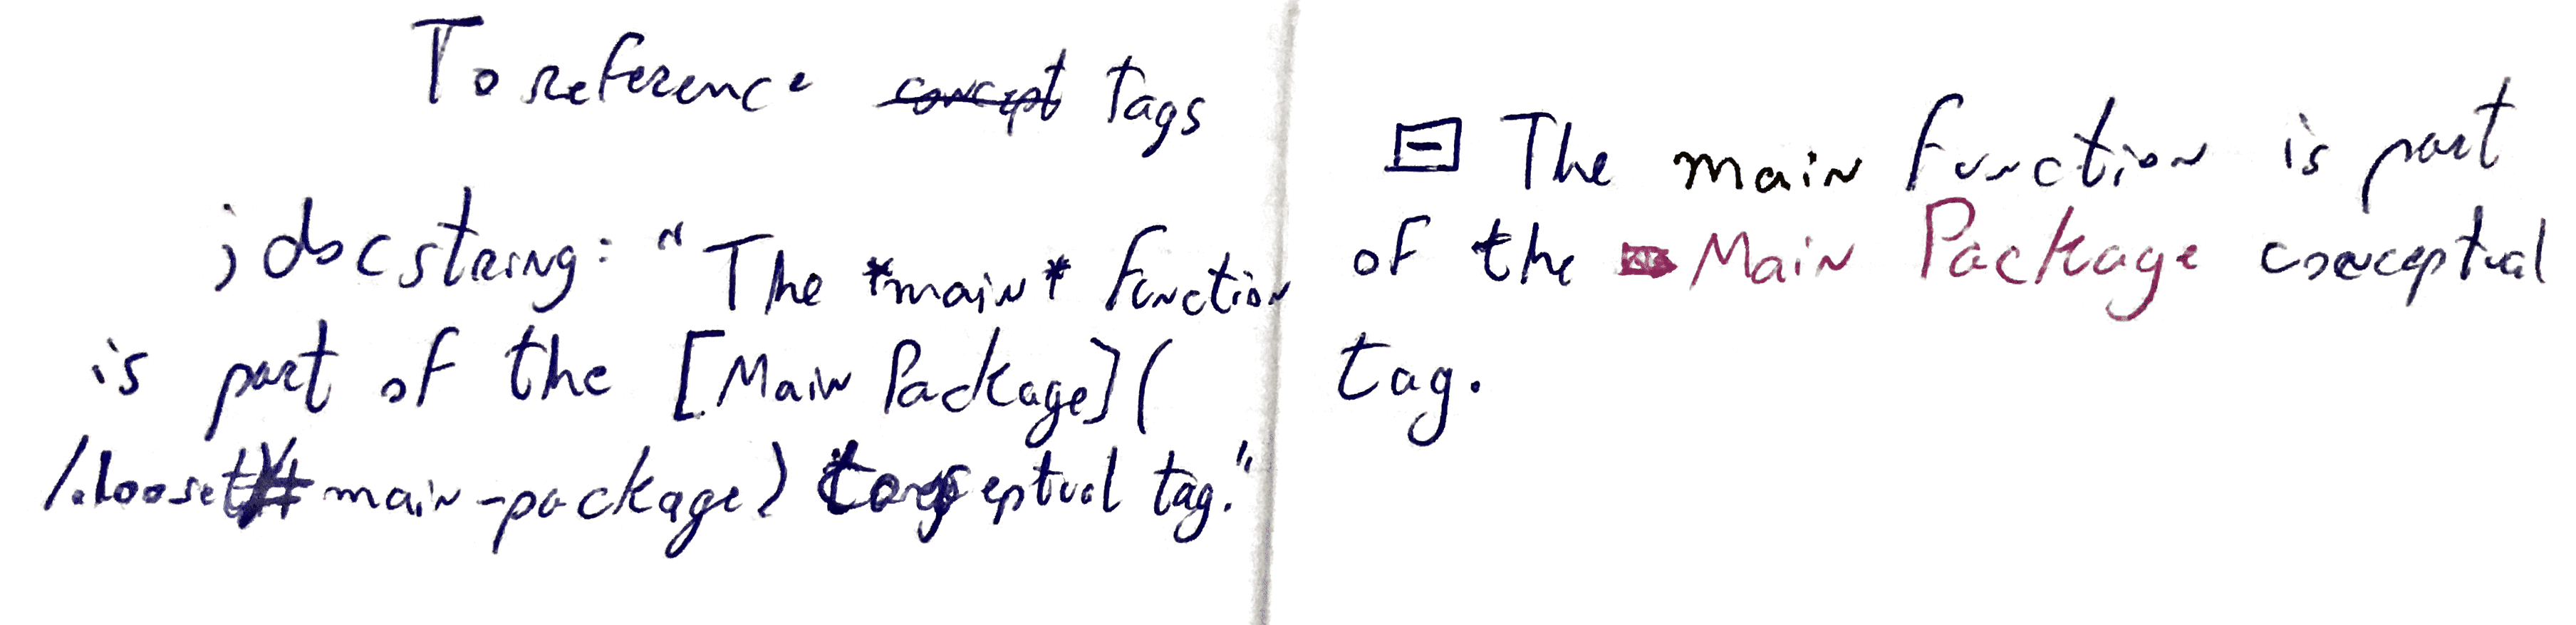 To reference tags
; docstring: "The *main* function
is part of the [Main Package](
/.looset/#main-package) conceptual tag."
The main function is part
of the Main Package conceptual
tag.